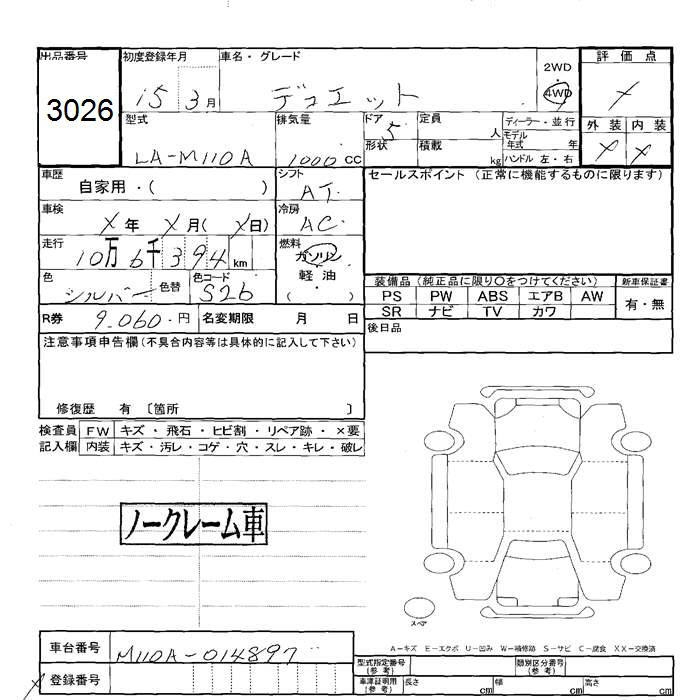 出品番号 初度登録年月 車名・グレード 評価点
3026 15 3月 デュエット 2WD 4WD ×
型式 排気量 ドア 5 定員 人 ディーラー・並行 外装 内装
形状 積載 kg モデル年式 年
LA-M110A 1000cc ハンドル 左・右 × ×
車歴 自家用・( ) シフト AT セールスポイント (正常に機能するものに限ります)
車検 X年 X月(X日) 冷房 AC
走行 10万6千394km 燃料 ガソリン
軽・油
( )
色 シルバー 色替 色コード S26 装備品(純正品に限り○をつけてください) 新車保証書
PS PW ABS エアB AW 有・無
SR ナビ TV カワ
R券 9,060.円 名変期限 月 日 後日品
注意事項申告欄(不具合内容等は具体的に記入して下さい)
修復歴 有 〔箇所 〕
検査員 FW キズ・飛石・ヒビ割・リペア跡・×要
記入欄 内装 キズ・汚レ・コゲ・穴・スレ・キレ・破レ
ノークレーム車
スペア
A−キズ E−エクボ U−凹み W−補修跡 S−サビ C−腐食 XX−交換済
車台番号 M110A-014897 型式指定番号(参考) 類別区分番号(参考)
登録番号 車庫証明用(参考) 長さ cm 幅 cm 高さ cm